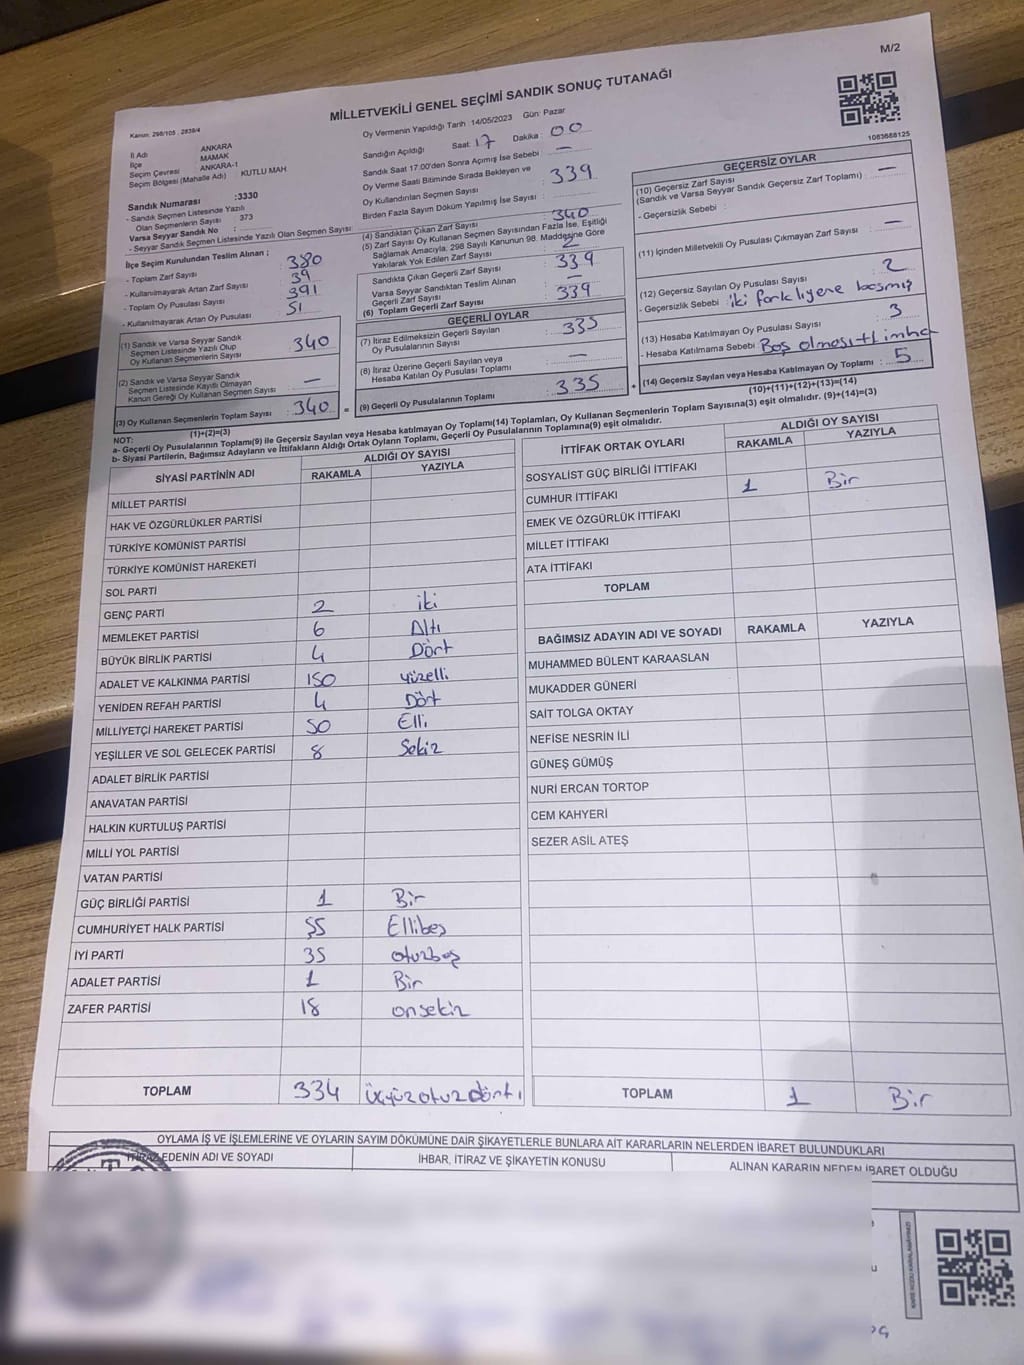 M/2
MİLLETVEKİLİ GENEL SEÇİMİ SANDIK SONUÇ TUTANAĞI
Kanun: 298/105 , 2839/4
Oy Vermenin Yapıldığı Tarih :14/05/2023 Gün: Pazar
1083688125
İl Adı ANKARA
İlçe MAMAK
Seçim Çevresi ANKARA-1
Seçim Bölgesi (Mahalle Adı) KUTLU MAH
Sandık Numarası :3330
- Sandık Seçmen Listesinde Yazılı
Olan Seçmenlerin Sayısı : 373
Varsa Seyyar Sandık No :
- Seyyar Sandık Seçmen Listesinde Yazılı Olan Seçmen Sayısı:
İlçe Seçim Kurulundan Teslim Alınan ;
- Toplam Zarf Sayısı : 380
- Kullanılmayarak Artan Zarf Sayısı : 39
- Toplam Oy Pusulası Sayısı : 391
- Kullanılmayarak Artan Oy Pusulası : 51
(1) Sandık ve Varsa Seyyar Sandık
Seçmen Listesinde Yazılı Olup
Oy Kullanan Seçmenlerin Sayısı : 340
(2) Sandık ve Varsa Seyyar Sandık
Seçmen Listesinde Kayıtlı Olmayan
Kanun Gereği Oy Kullanan Seçmen Sayısı : —
(3) Oy Kullanan Seçmenlerin Toplam Sayısı : 340 =
(1)+(2)=(3)
Sandığın Açıldığı Saat: 17 Dakika : 00
Sandık Saat 17:00'den Sonra Açılmış İse Sebebi : —
Oy Verme Saati Bitiminde Sırada Bekleyen ve
Oy Kullandırılan Seçmen Sayısı : 339
Birden Fazla Sayım Döküm Yapılmış İse Sayısı :
(4) Sandıktan Çıkan Zarf Sayısı : 340
(5) Zarf Sayısı Oy Kullanan Seçmen Sayısından Fazla İse, Eşitliği
Sağlamak Amacıyla, 298 Sayılı Kanunun 98. Maddesine Göre
Yakılarak Yok Edilen Zarf Sayısı : 2
Sandıkta Çıkan Geçerli Zarf Sayısı : 339
Varsa Seyyar Sandıktan Teslim Alınan
Geçerli Zarf Sayısı : —
(6) Toplam Geçerli Zarf Sayısı : 339
GEÇERLİ OYLAR
(7) İtiraz Edilmeksizin Geçerli Sayılan
Oy Pusulalarının Sayısı : 335
(8) İtiraz Üzerine Geçerli Sayılan veya
Hesaba Katılan Oy Pusulası Toplamı : —
(9) Geçerli Oy Pusulalarının Toplamı : 335 +
GEÇERSİZ OYLAR
(10) Geçersiz Zarf Sayısı
(Sandık ve Varsa Seyyar Sandık Geçersiz Zarf Toplamı) : —
- Geçersizlik Sebebi :
(11) İçinden Milletvekili Oy Pusulası Çıkmayan Zarf Sayısı : —
(12) Geçersiz Sayılan Oy Pusulası Sayısı : 2
- Geçersizlik Sebebi : iki farklı yere basmış
(13) Hesaba Katılmayan Oy Pusulası Sayısı : 3
- Hesaba Katılmama Sebebi : Boş olması
(14) Geçersiz Sayılan veya Hesaba Katılmayan Oy Toplamı : 5
(10)+(11)+(12)+(13)=(14)
NOT:
a- Geçerli Oy Pusulalarının Toplamı(9) ile Geçersiz Sayılan veya Hesaba katılmayan Oy Toplamı(14) Toplamları, Oy Kullanan Seçmenlerin Toplam Sayısına(3) eşit olmalıdır. (9)+(14)=(3)
b- Siyasi Partilerin, Bağımsız Adayların ve İttifakların Aldığı Ortak Oyların Toplamı, Geçerli Oy Pusulalarının Toplamına(9) eşit olmalıdır.
SİYASİ PARTİNİN ADI ALDIĞI OY SAYISI
RAKAMLA YAZIYLA
MİLLET PARTİSİ
HAK VE ÖZGÜRLÜKLER PARTİSİ
TÜRKİYE KOMÜNİST PARTİSİ
TÜRKİYE KOMÜNİST HAREKETİ
SOL PARTİ
GENÇ PARTİ 2 iki
MEMLEKET PARTİSİ 6 Altı
BÜYÜK BİRLİK PARTİSİ 4 Dört
ADALET VE KALKINMA PARTİSİ 150 yüzelli
YENİDEN REFAH PARTİSİ 4 Dört
MİLLİYETÇİ HAREKET PARTİSİ 50 Elli
YEŞİLLER VE SOL GELECEK PARTİSİ 8 Sekiz
ADALET BİRLİK PARTİSİ
ANAVATAN PARTİSİ
HALKIN KURTULUŞ PARTİSİ
MİLLİ YOL PARTİSİ
VATAN PARTİSİ
GÜÇ BİRLİĞİ PARTİSİ 1 Bir
CUMHURİYET HALK PARTİSİ 55 Ellibeş
İYİ PARTİ 35 otuzbeş
ADALET PARTİSİ 1 Bir
ZAFER PARTİSİ 18 onsekiz
TOPLAM 334 üçyüzotuzdört
İTTİFAK ORTAK OYLARI ALDIĞI OY SAYISI
RAKAMLA YAZIYLA
SOSYALİST GÜÇ BİRLİĞİ İTTİFAKI
CUMHUR İTTİFAKI 1 Bir
EMEK VE ÖZGÜRLÜK İTTİFAKI
MİLLET İTTİFAKI
ATA İTTİFAKI
TOPLAM
BAĞIMSIZ ADAYIN ADI VE SOYADI RAKAMLA YAZIYLA
MUHAMMED BÜLENT KARAASLAN
MUKADDER GÜNERİ
SAİT TOLGA OKTAY
NEFİSE NESRİN İLİ
GÜNEŞ GÜMÜŞ
NURİ ERCAN TORTOP
CEM KAHYERİ
SEZER ASİL ATEŞ
TOPLAM 1 Bir
OYLAMA İŞ VE İŞLEMLERİNE VE OYLARIN SAYIM DÖKÜMÜNE DAİR ŞİKAYETLERLE BUNLARA AİT KARARLARIN NELERDEN İBARET BULUNDUKLARI
İTİRAZ EDENİN ADI VE SOYADI İHBAR, İTİRAZ VE ŞİKAYETİN KONUSU ALINAN KARARIN NEDEN İBARET OLDUĞU